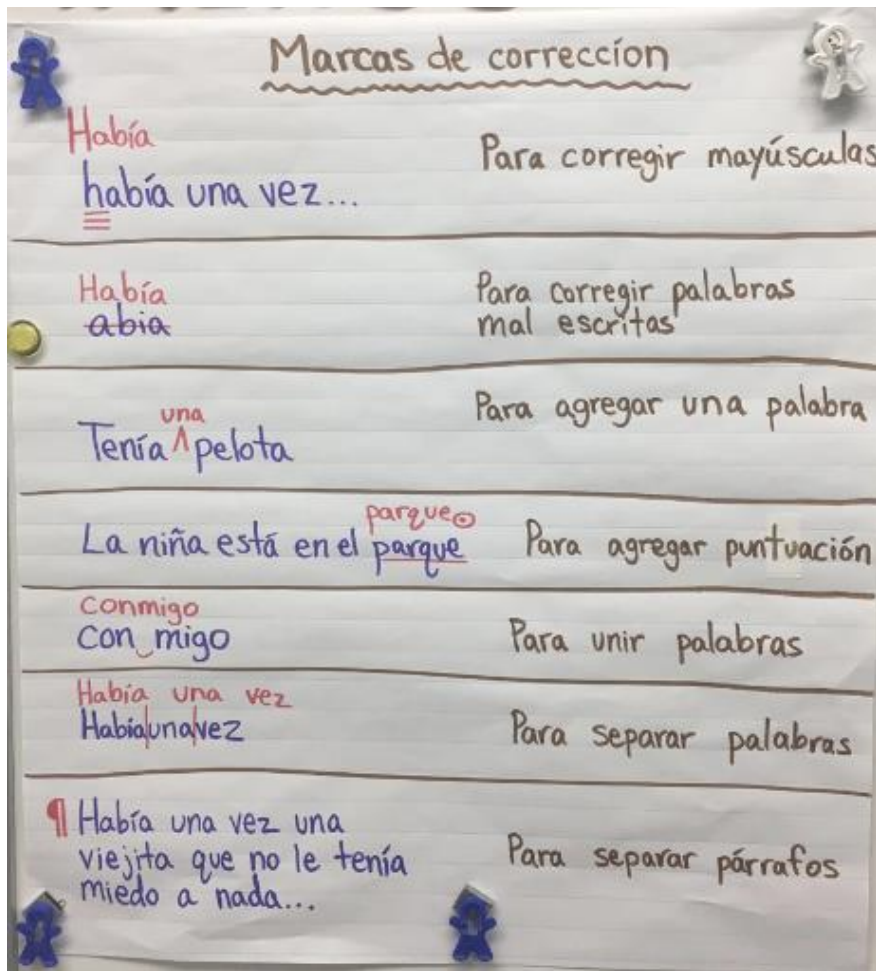 Marcas de correccíon
Había
había una vez...
Para corregir mayúsculas
Había
abia
Para corregir palabras
mal escritas
una
Tenía ^ pelota
Para agregar una palabra
parque⊙
La niña está en el parque
Para agregar puntuación
Conmigo
con migo
Para unir palabras
Había una vez
Había|una|vez
Para separar palabras
¶ Había una vez una
viejita que no le tenía
miedo a nada...
Para separar párrafos